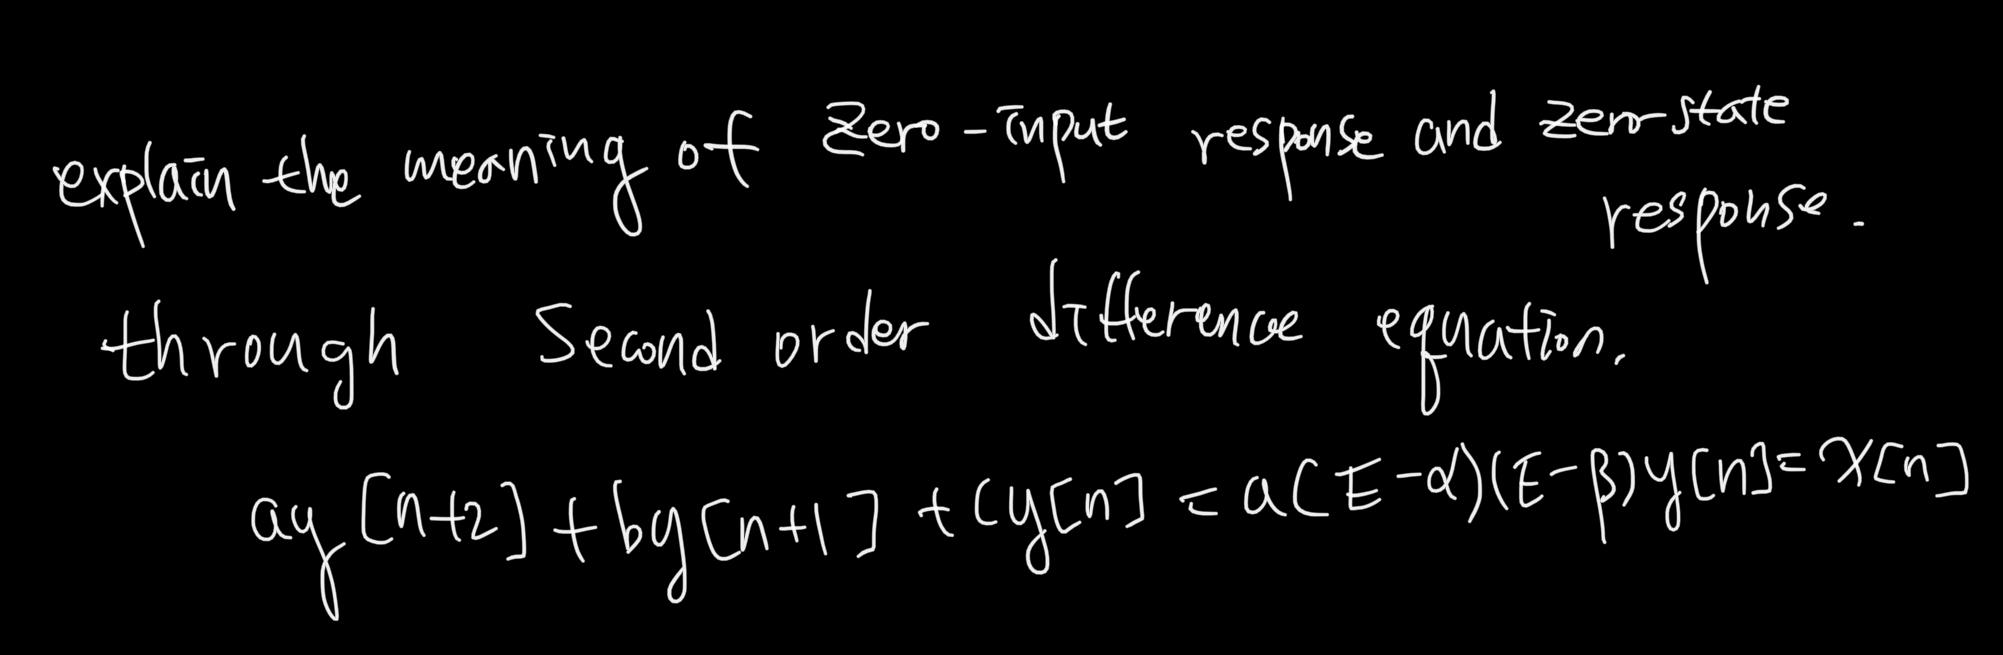 explain the meaning of zero-input response and zero-state
response.
through Second order difference equation.
ay[n+2]+by[n+1]+cy[n]=a(E-α)(E-β)y[n]=x[n]